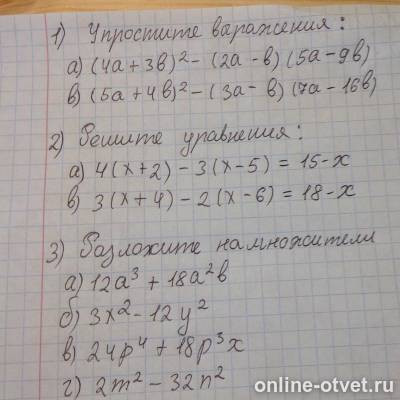 1) Упростите варажения:
а) (4а + 3в)² - (2а - в) (5а - 9в)
в) (5а + 4в)² - (3а - в) (7а - 16в)
2) Решите уравнения:
а) 4(x+2) - 3(x-5) = 15-x
в) 3(x+4) - 2(x-6) = 18-x
3) Разложите на множители
а) 12a³ + 18a²в
б) 3x² - 12y²
в) 24p⁴ + 18p³x
г) 2m² - 32n²
online-otvet.ru